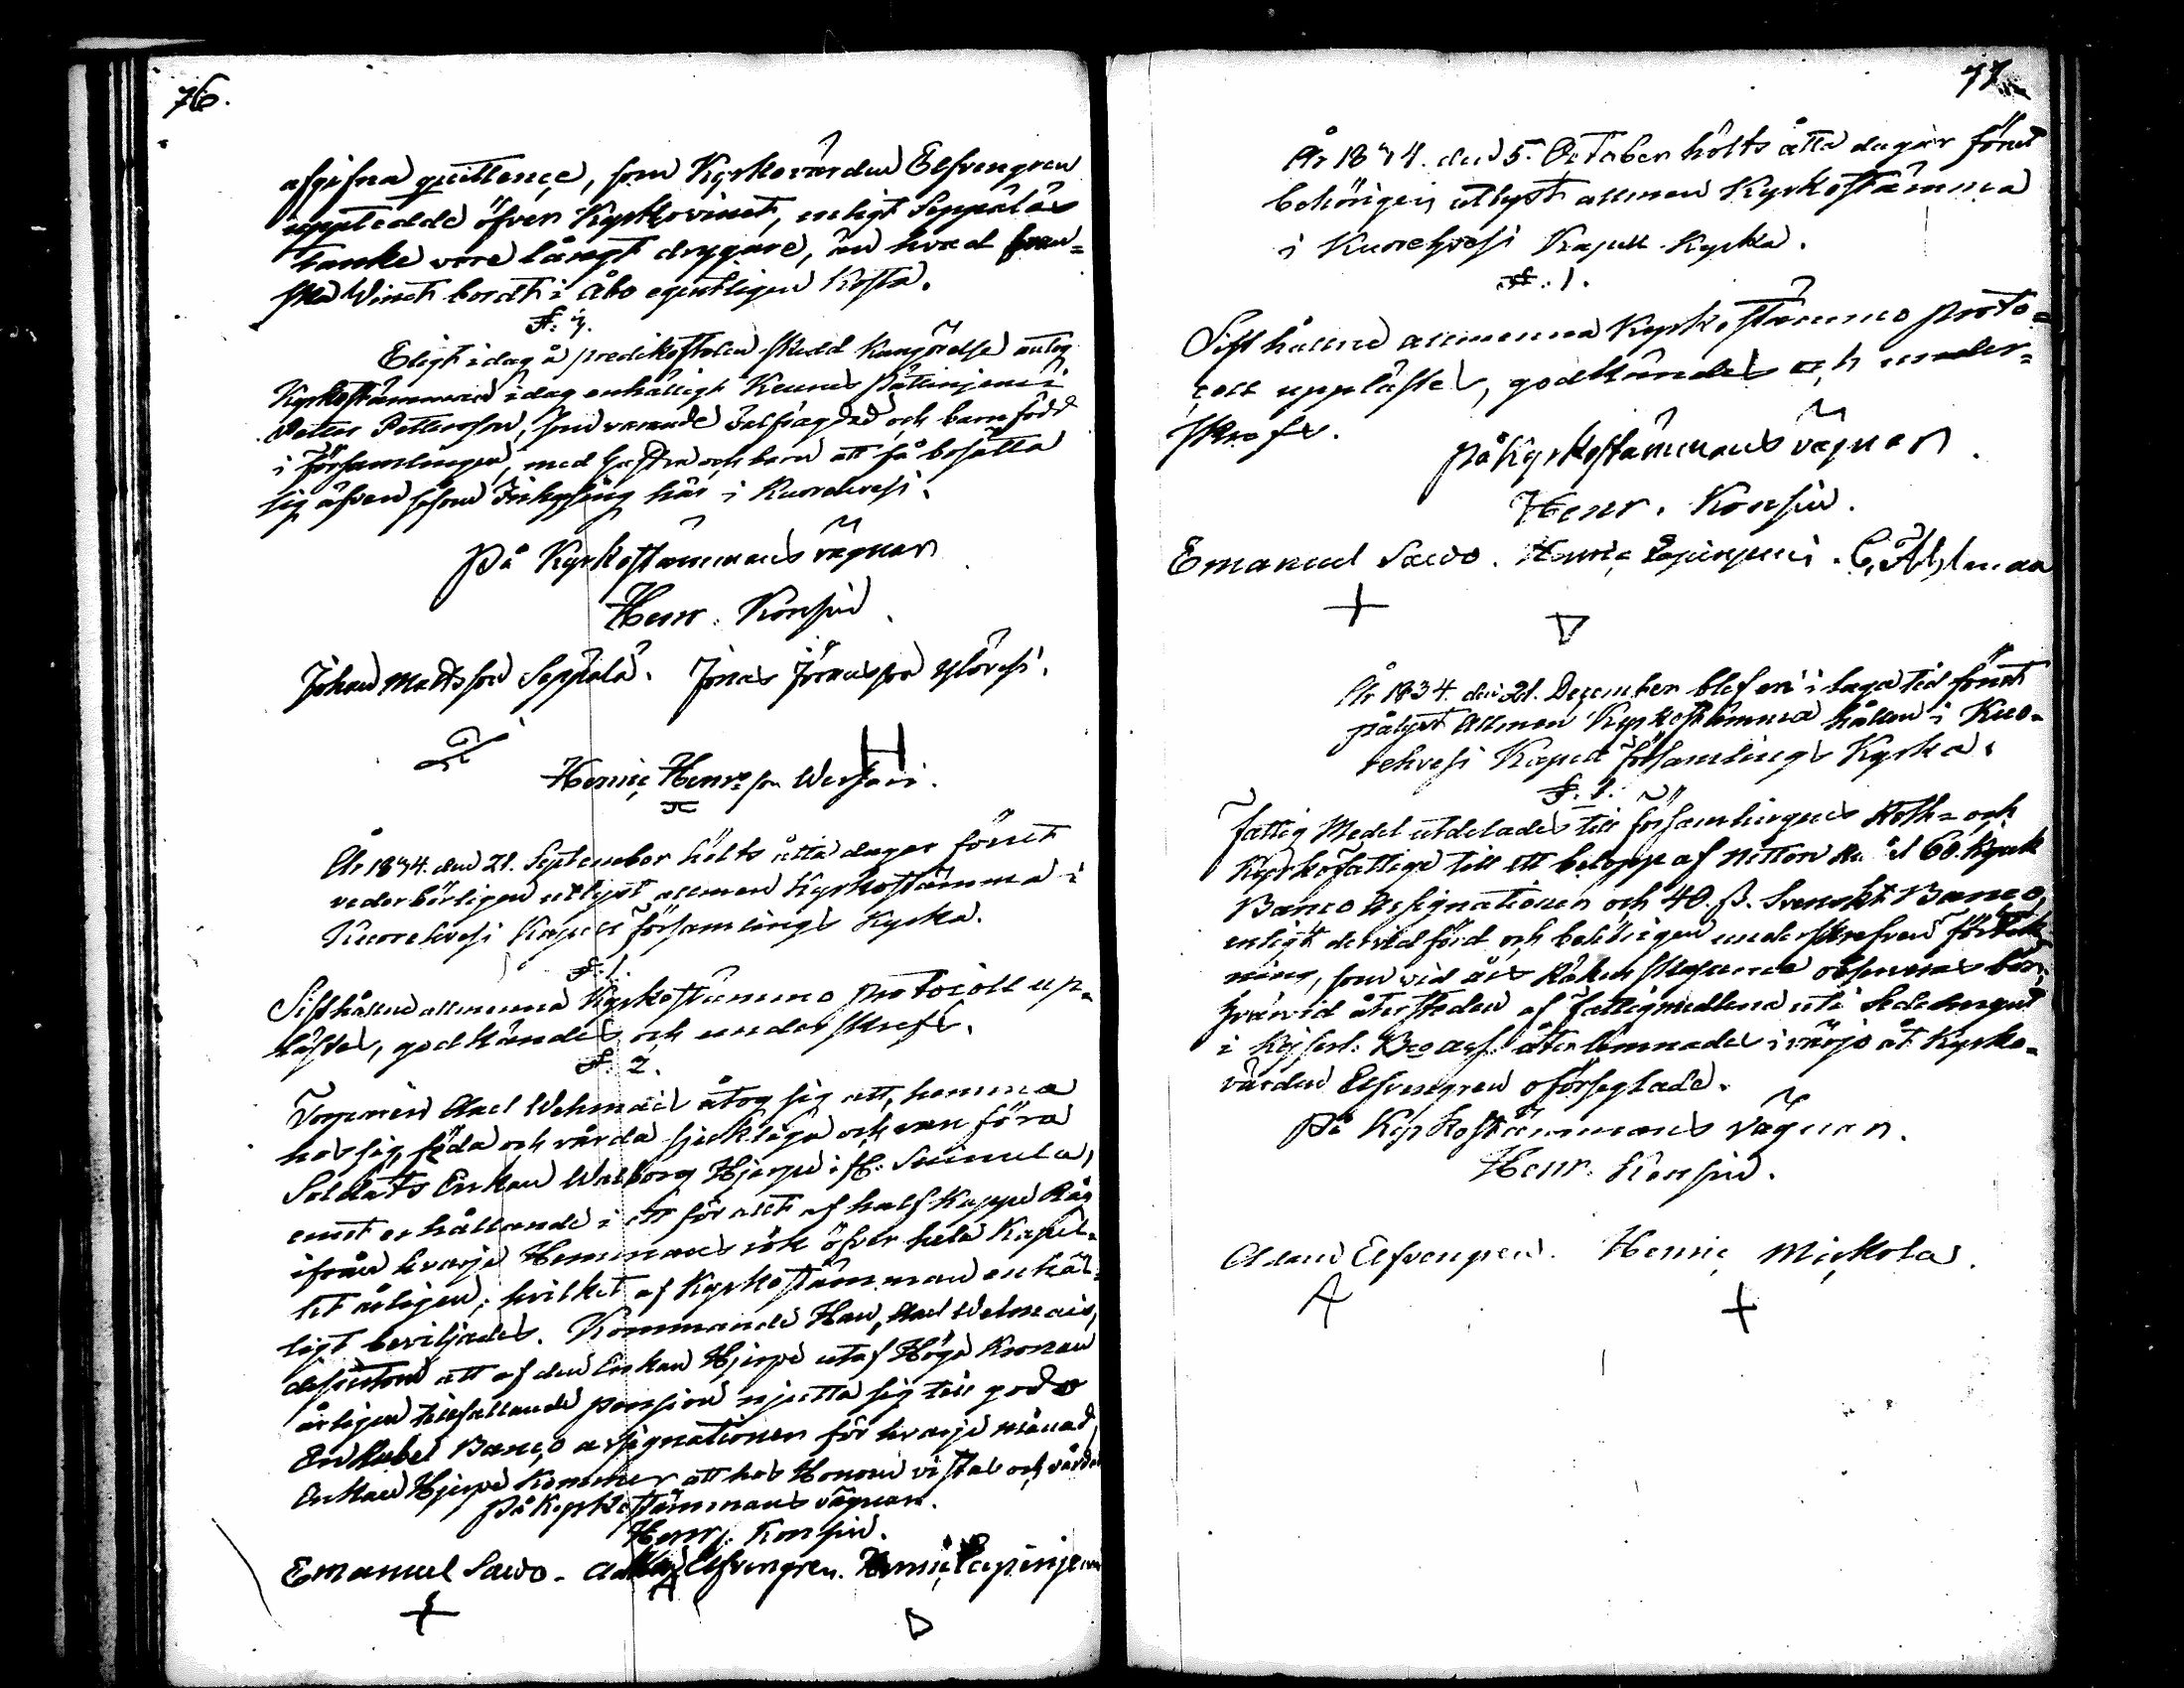 76.
afgifna quittence, som Kyrkovärden Elfvengren
uppledde öfver Kyrkovinet, enligt Seppäläs
tanke vore långt drygare, än hvad fran-
ska Winet bordt i Åbo egentligen kosta.
§. 7.
Eligt idag å predikstolen skedd kungörelse antog
Kyrkostämman idag enhälligt Keurus
Petter Pettersson, och barnfödd
i församlingen, med hustru och barn att få bosätta
sig äfven såsom Inhysing här i Kuorehvesi.
På Kyrkostämmans vägnar
Henr. Konsin.
Johan Mattsson Seppälä. Jonas Jöransson Ylövesi.
H
Henric Henrs son Werho
År 1834. den 21. September hölts åtta dagar förut
vederbörligen utlyst allmen Kyrkostämma i
Kuorehvesi Kapell församlings Kyrka.
§. 1.
Sisthållne allmenna Kyrkostämmo protocoll up-
lästes, godkändes och underskrefs.
§. 2.
Torparen Abel Wehmais åtog sig att, hemma
hos sig, föda och vårda sjukliga och vanföra
Soldats Enkan Walborg Hjerpe i H. Suinula,
emot erhållande i ett för allt af half Kappe Råg
ifrån hvarje Hemmans rök öfver hela Kapel-
let årligen; hvilket af Kyrkostämman enhäl-
ligt beviljades. Kommande Han, Abel Wehmais,
desutom att af den Enkan Hjerpe utaf Höga Kronan
årligen tillfallande pension njutta sig till godo
En Rubel Banco assignationer för hvarje månad,
Enkan Hjerpe kommer att hos Honom vistas och vårdas
På Kyrkostämmans vägnar.
Henr. Konsin.
Emanuel Sawo. Adam Elfvengren. Henric Papinjemi
+ A D
77
År 1834. den 5. October hölts åtta dagar förut
behörigen utlyst allmen Kyrkostämma
i Kuorehvesi Kapell Kyrka.
§. 1.
Sist hållne allmenna Kyrkostämmo proto-
coll upplästes, godkändes och under-
skrefs.
På Kyrkostämmans vägnar.
Henr. Konsin.
Emanuel Sawo. Henric Papinjemi. C. Ahlman
+ D
År 1834. den 21. December blef en i laga tid förut
pålyst Allmen Kyrkostämma hållen i Kuo-
rehvesi Kapell församlings Kyrka.
§. 1.
Fattig Medel utdelades till församlingens Roth- och
Kyrkofattige till ett belopp af Nitton Ru l 60. Kpek
Banco Assignationer och 40. ß. Svenskt Banco,
enligt dervid förd och behörigen underskrefven förteck
ning, som vid års Räken observeras bör,
hvarvid återstoden af Fattigmedlena uti Sedelmynt
i Kejserl. Bco ass. återlemnades i värjo åt Kyrko-
värden Elfvengren oförseglade.
På Kyrkostämmans vägnar.
Henr. Konsin.
Adam Elfvengren. Henric Mickola.
A +